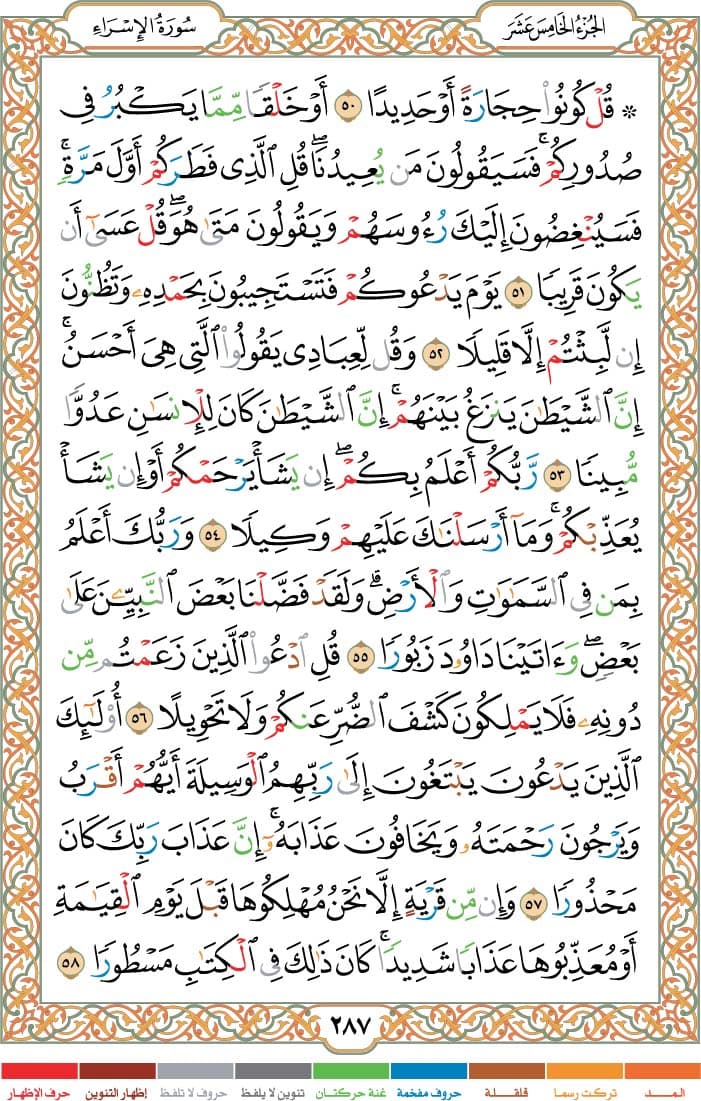 الجزء الخامس عشر
سورة الإسراء
۞ قُلْ كُونُوا۟ حِجَارَةً أَوْ حَدِيدًا ٥٠ أَوْ خَلْقًا مِّمَّا يَكْبُرُ فِى
صُدُورِكُمْ ۚ فَسَيَقُولُونَ مَن يُعِيدُنَا ۖ قُلِ ٱلَّذِى فَطَرَكُمْ أَوَّلَ مَرَّةٍ ۚ
فَسَيُنْغِضُونَ إِلَيْكَ رُءُوسَهُمْ وَيَقُولُونَ مَتَىٰ هُوَ ۖ قُلْ عَسَىٰٓ أَن
يَكُونَ قَرِيبًا ٥١ يَوْمَ يَدْعُوكُمْ فَتَسْتَجِيبُونَ بِحَمْدِهِۦ وَتَظُنُّونَ
إِن لَّبِثْتُمْ إِلَّا قَلِيلًا ٥٢ وَقُل لِّعِبَادِى يَقُولُوا۟ ٱلَّتِى هِىَ أَحْسَنُ ۚ
إِنَّ ٱلشَّيْطَـٰنَ يَنزَغُ بَيْنَهُمْ ۚ إِنَّ ٱلشَّيْطَـٰنَ كَانَ لِلْإِنسَـٰنِ عَدُوًّا
مُّبِينًا ٥٣ رَّبُّكُمْ أَعْلَمُ بِكُمْ ۖ إِن يَشَأْ يَرْحَمْكُمْ أَوْ إِن يَشَأْ
يُعَذِّبْكُمْ ۚ وَمَآ أَرْسَلْنَـٰكَ عَلَيْهِمْ وَكِيلًا ٥٤ وَرَبُّكَ أَعْلَمُ
بِمَن فِى ٱلسَّمَـٰوَٰتِ وَٱلْأَرْضِ ۗ وَلَقَدْ فَضَّلْنَا بَعْضَ ٱلنَّبِيِّـۧنَ عَلَىٰ
بَعْضٍ ۖ وَءَاتَيْنَا دَاوُۥدَ زَبُورًا ٥٥ قُلِ ٱدْعُوا۟ ٱلَّذِينَ زَعَمْتُم مِّن
دُونِهِۦ فَلَا يَمْلِكُونَ كَشْفَ ٱلضُّرِّ عَنكُمْ وَلَا تَحْوِيلًا ٥٦ أُو۟لَـٰٓئِكَ
ٱلَّذِينَ يَدْعُونَ يَبْتَغُونَ إِلَىٰ رَبِّهِمُ ٱلْوَسِيلَةَ أَيُّهُمْ أَقْرَبُ
وَيَرْجُونَ رَحْمَتَهُۥ وَيَخَافُونَ عَذَابَهُۥٓ ۚ إِنَّ عَذَابَ رَبِّكَ كَانَ
مَحْذُورًا ٥٧ وَإِن مِّن قَرْيَةٍ إِلَّا نَحْنُ مُهْلِكُوهَا قَبْلَ يَوْمِ ٱلْقِيَـٰمَةِ
أَوْ مُعَذِّبُوهَا عَذَابًا شَدِيدًا ۚ كَانَ ذَٰلِكَ فِى ٱلْكِتَـٰبِ مَسْطُورًا ٥٨
٢٨٧
المـــد تركت رسما قلقلة حروف مفخمة غنة حركتان تنوين لا يلفظ حروف لا تلفظ إظهار التنوين حرف الإظهار